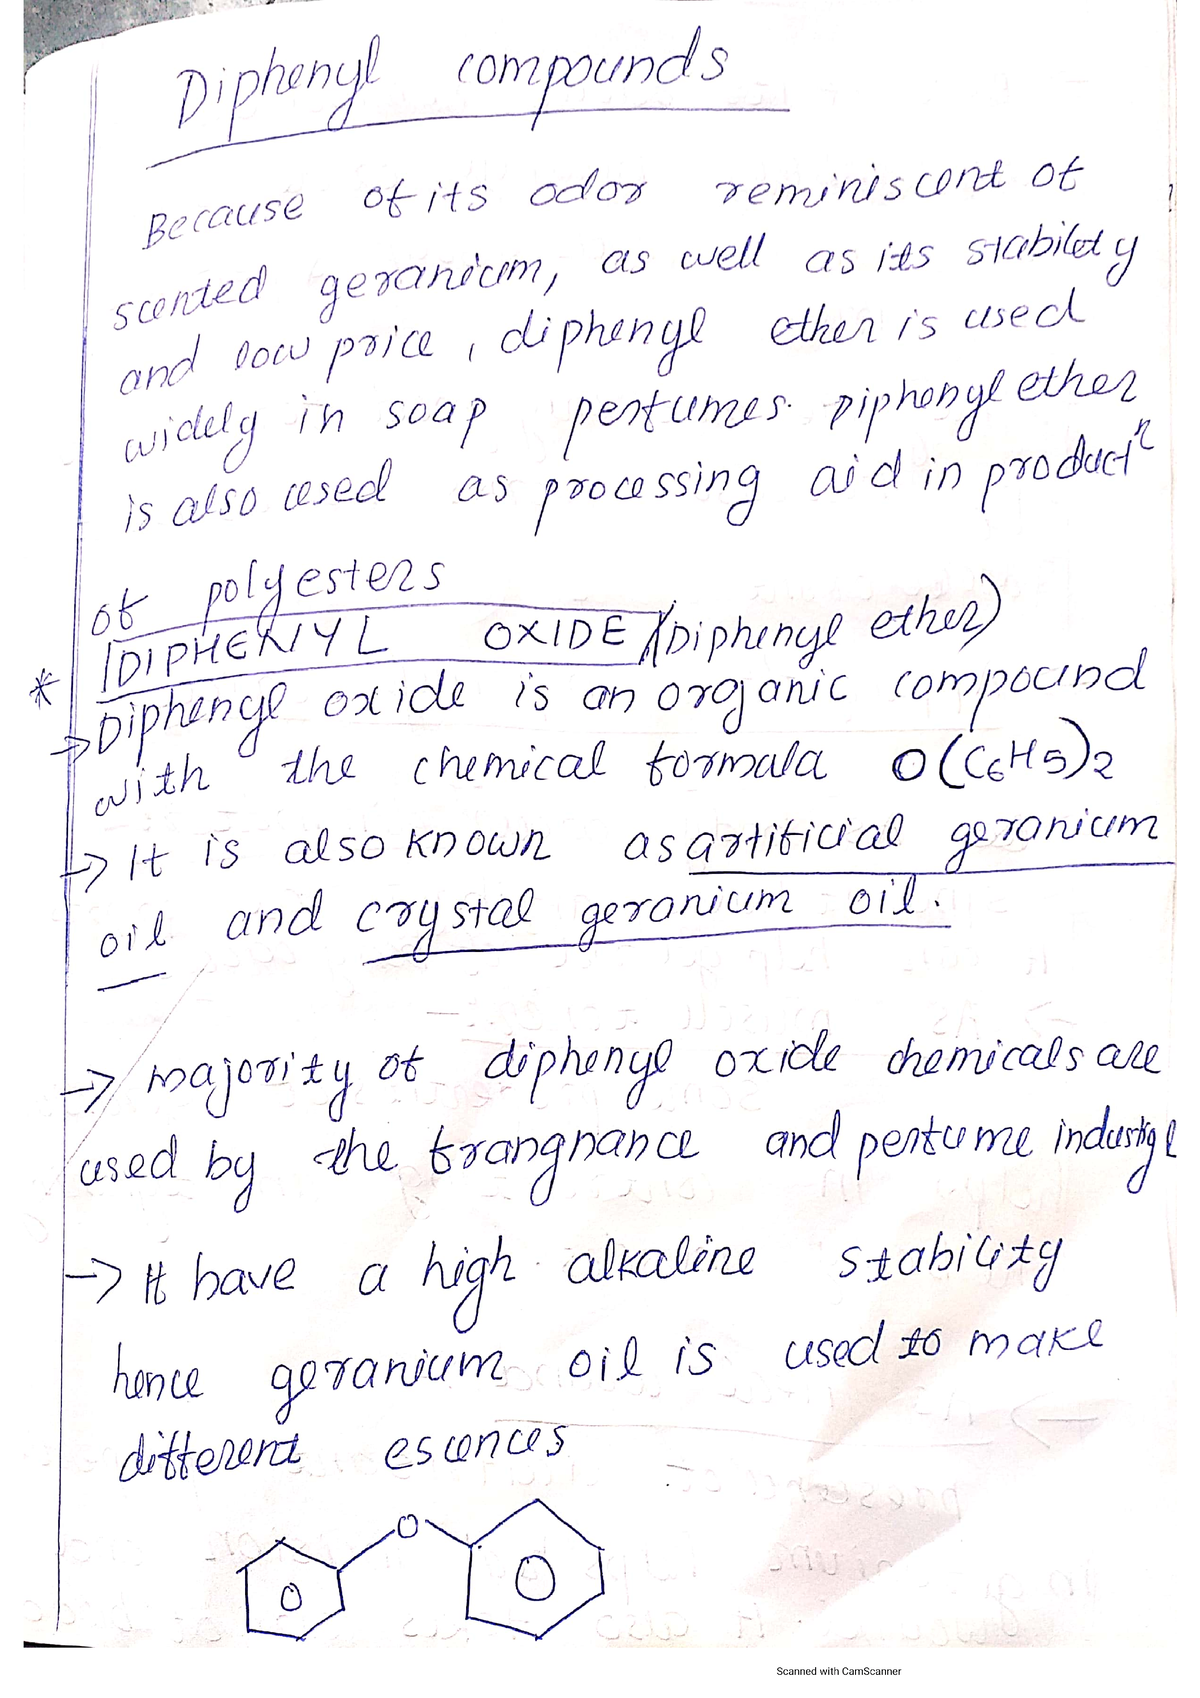 Diphenyl compounds
Because of its odor reminiscent of
scented geranium, as well as its stability
and low price, diphenyl ether is used
widely in soap perfumes. Diphenyl ether
is also used as processing aid in productⁿ
of polyesters
* DIPHENYL OXIDE (Diphenyl ether)
→ Diphenyl oxide is an organic compound
with the chemical formala O(C6H5)2
→ It is also known as artificial geranium
oil and crystal geranium oil.
→ majority of diphenyl oxide chemicals are
used by the frangnance and perfume
→ It have a high alkaline stability
hence geranium oil is used to make
different escences
O
Scanned with CamScanner